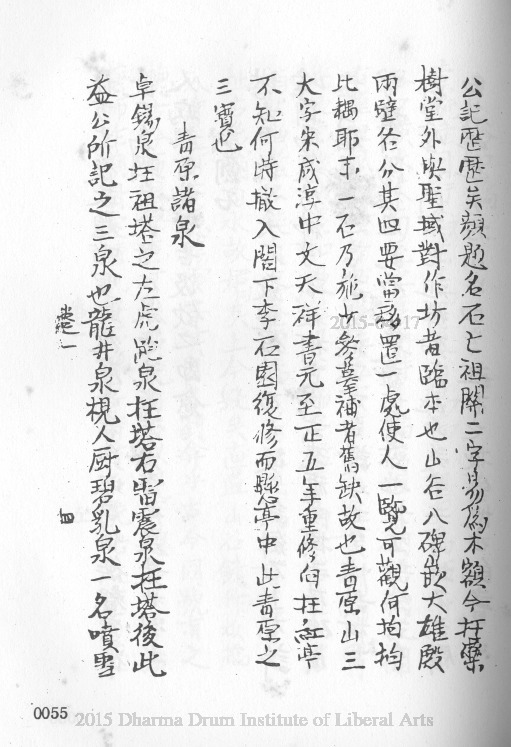 公記歷歷矣顏題名石七祖關二字易為木額今在藥
樹堂外與聖域對作坊者臨本也山谷八碑嵌大雄殿
兩壁各分其四要當移置一處使人一覽可觀何拘拘
比耦耶末一石乃施少參摹補者舊缺故也青原山三
大字宋咸淳中文天祥書元至正五年重修向在紅亭
不知何時撤入閣下李石園復修而懸亭中此青原之
三寶也
青原諸泉
卓錫泉在祖塔之左虎跑泉在塔右雷震泉在塔後此
益公所記之三泉也龍井泉梘人厨碧乳泉一名噴雪
卷一
四
2015-04-17
0055
2015 Dharma Drum Institute of Liberal Arts